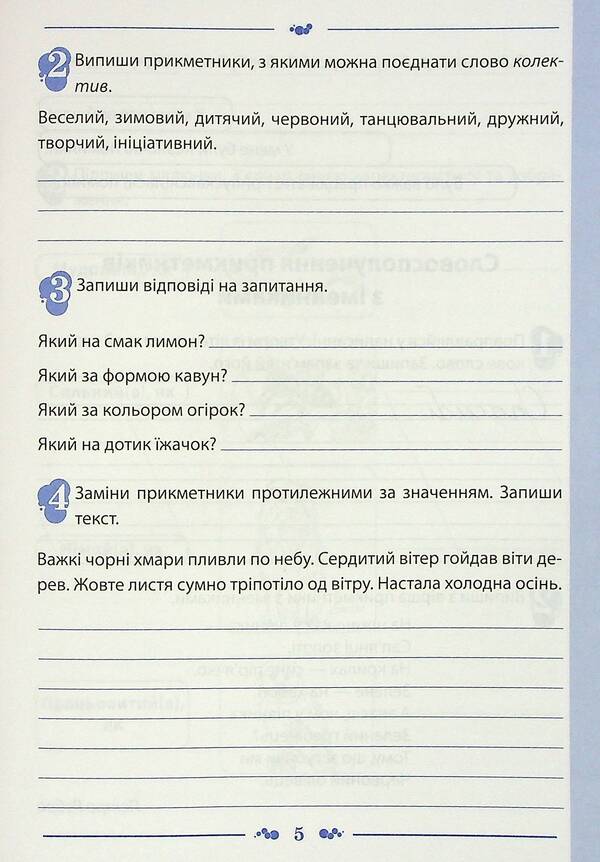 2 Випиши прикметники, з якими можна поєднати слово колек-
тив.
Веселий, зимовий, дитячий, червоний, танцювальний, дружний,
творчий, ініціативний.
3 Запиши відповіді на запитання.
Який на смак лимон?
Який за формою кавун?
Який за кольором огірок?
Який на дотик їжачок?
4 Заміни прикметники протилежними за значенням. Запиши
текст.
Важкі чорні хмари пливли по небу. Сердитий вітер гойдав віти де-
рев. Жовте листя сумно тріпотіло од вітру. Настала холодна осінь.
5